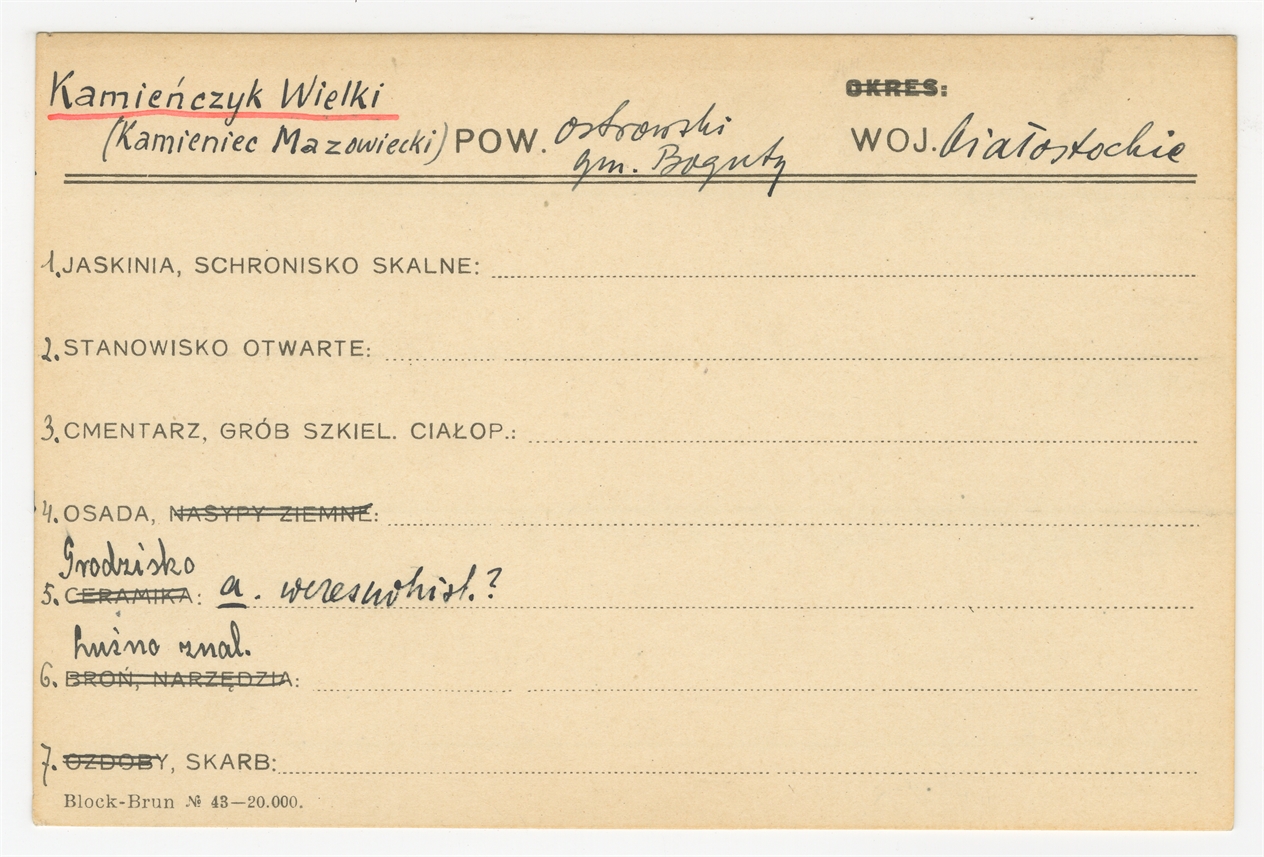 Kamieńczyk Wielki OKRES:
(Kamieniec Mazowiecki) POW. ostrowski WOJ. białostockie
gm. Boguty
1. JASKINIA, SCHRONISKO SKALNE:
2. STANOWISKO OTWARTE:
3. CMENTARZ, GRÓB SZKIEL. CIAŁOP.:
4. OSADA, NASYPY ZIEMNE:
Grodzisko
5. CERAMIKA: a. wczesnohist.?
Luźno znal.
6. BROŃ, NARZĘDZIA:
7. OZDOBY, SKARB:
Block-Brun № 43—20.000.